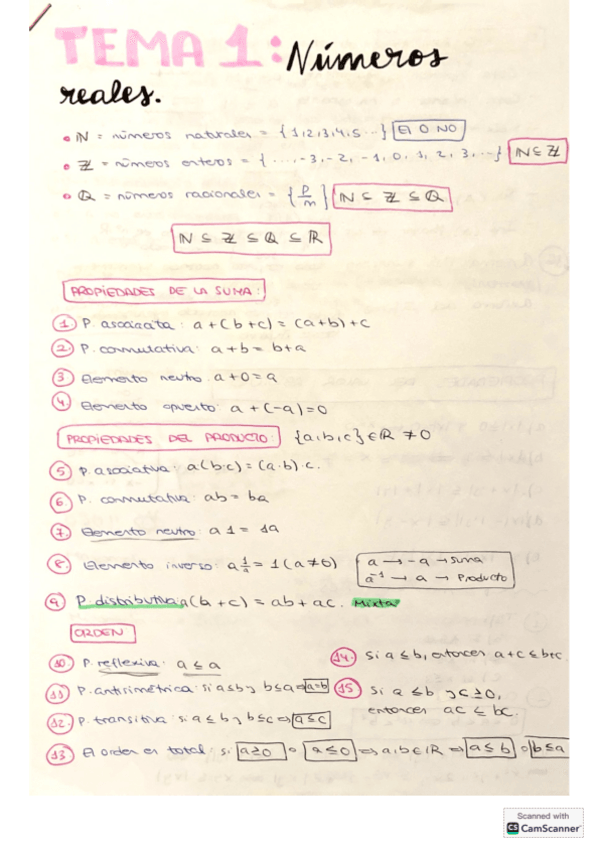 TEMA 1: Números
reales.
• ℕ = números naturales = {1,2,3,4,5...} El 0 NO
• ℤ = números enteros = {...,-3,-2,-1,0,1,2,3,...} ℕ⊆ℤ
• ℚ = números racionales = {p/m} ℕ⊆ℤ⊆ℚ
ℕ ⊆ ℤ ⊆ ℚ ⊆ ℝ
PROPIEDADES DE LA SUMA:
1. P. asociata: a+(b+c)=(a+b)+c
2. P. conmutativa: a+b=b+a
3 Elemento neutro: a+0=a
4. Elemento opuesto: a+(-a)=0
PROPIEDADES DEL PRODUCTO: {a,b,c}∈ℝ ≠0
5 P. asociativa: a(b·c)=(a·b)·c.
6 P. conmutativa: ab=ba
7. Elemento neutro: a1=1a
8. Elemento inverso: a 1/a = 1 (a≠b)
a → -a → suma
a⁻¹ → a → Producto
9 P. distributiva: a(b+c)=ab+ac. Mixta
ORDEN
10. P. reflexiva: a≤a
11) P. antisimétrica: si a≤b y b≤a ⇒ a=b
12. P. transitiva: si a≤b y b≤c ⇒ a≤c
13 El orden es total: si a≥0 o a≤0 ⇒ a,b∈ℝ ⇒ a≤b o b≤a
14. Si a≤b, entonces a+c≤b+c.
15 Si a≤b y c≥0,
entonces ac≤bc.
Scanned with
CS CamScanner